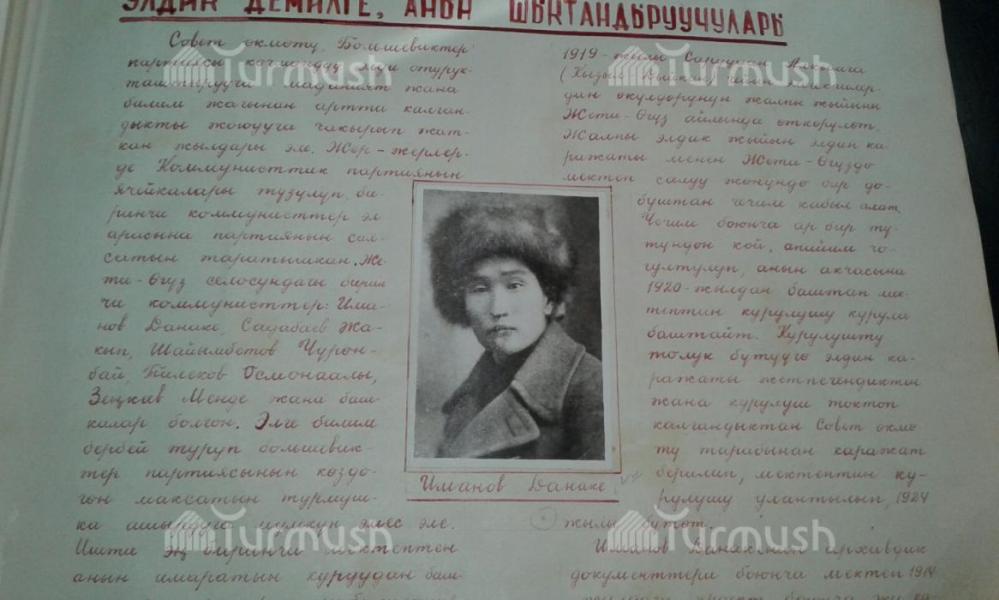 ЭЛДИК ДЕМИЛГЕ, АНЫН ЫКТАНДЫРУУЧУЛАРЫ
Совет өкмөтү, Большевиктер
партиясы көчмөндөрдү элди отурук-
таштырууга маданият жана
билим жагынан артта калган-
дыкты жоюуга чакырып жат-
кан жылдары эле. Жер-жерлер-
де Коммунисттик партиянын
ячейкалары түзүлүп, би-
ринчи коммунисттер эл
арасына партиянын сая-
сатын таратышкан. Же-
ти-Өгүз селосундагы бирин-
чи коммунисттер: Има-
нов Данаке, Садабаев Жа-
кып, Шайымбетов Чүрөн-
бай, Тилеков Осмонаалы,
Зецкав Менде жана баш-
калар болгон. Элге билим
бербей туруп большевик-
тер партиясынын көздө-
гөн максатын турмуш-
ка ашырууга мүмкүн эмес эле.
Ишти эң биринчи мектептен
анын имаратын куруудан баш-
Иманов Данаке
1919-жылы
дан өкүлдөрүнүн жалпы жыйыны
Жети-Өгүз айлында өткөрүлөт.
Жалпы элдик жыйын элдин ка-
ражаты менен Жети-Өгүздө
мектеп салуу жөнүндө бир до-
буштан чечим кабыл алат.
Чечим боюнча ар бир тү-
түндөн кой, апийим чо-
гултулуп, анын акчасына
1920-жылдан баштап ме-
тептин курулушу курула
баштайт. Курулушту
толук бүтүүгө элдин ка-
ражаты жетпегендиктен
жана курулуш токтоп
калгандыктан Совет өкмө-
тү тарабынан каражат
берилип, мектептин ку-
рулушу улантылып, 1924
жылы бүтөт.
Иманов Данакенин архивдик
документтери боюнча мектеп 1914
Turmush
Turmush
Turmush
Turmush
Turmush
Turmush